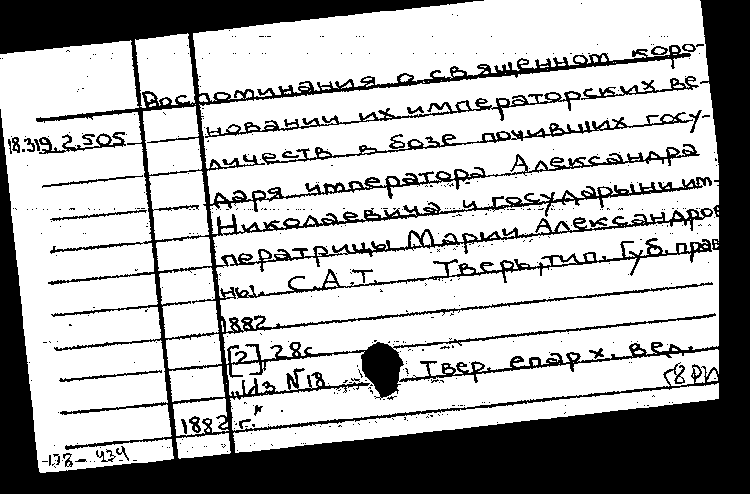 Воспоминания о священном коро-
18.319.2.505
новании их императорских ве-
личеств в бозе почивших госу-
даря императора Александра
Николаевича и государыни им-
ператрицы Марии Александров
ны. С.А.Т. Тверь, тип. Губ. прав
1882.
[2], 28с
"Из N18 Твер. епарх. вед.
1882 г."